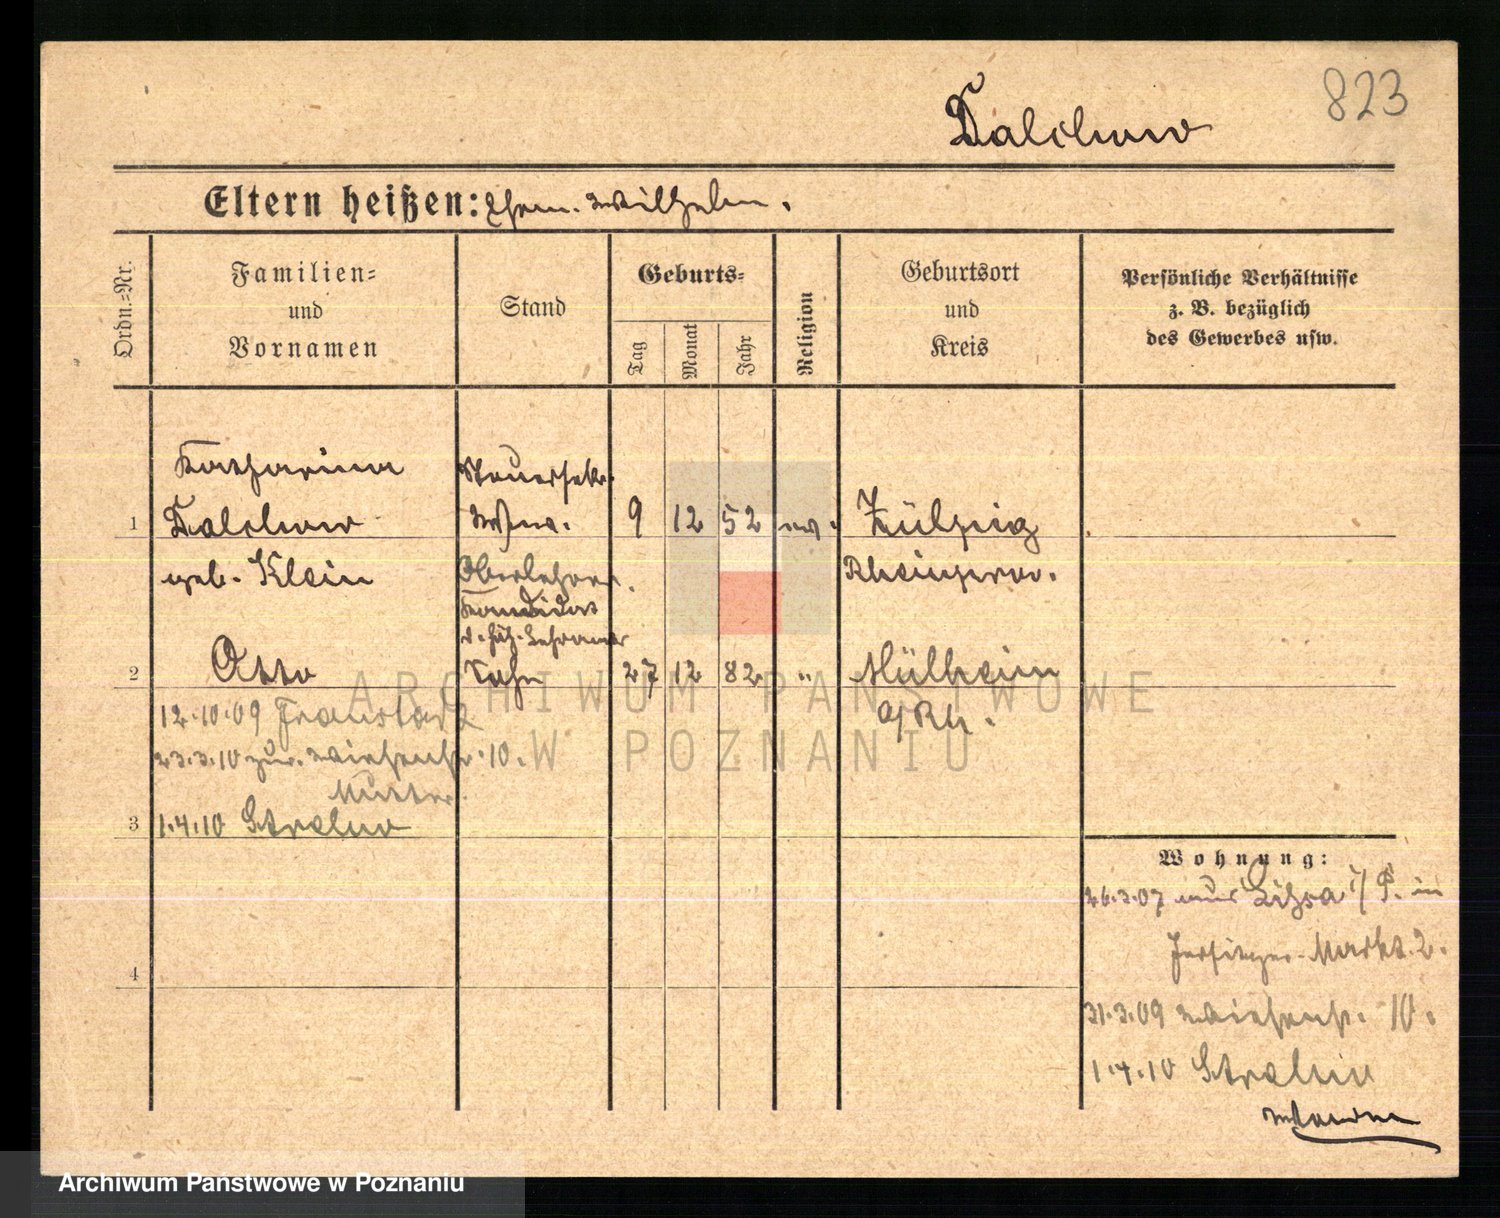 823
Dalchow
Eltern heißen: Ehem. Wilhelm.
Ordn.=Nr.
Familien=
und
Vornamen
Stand
Geburts=
Tag
Monat
Jahr
Religion
Geburtsort
und
Kreis
Persönliche Verhältnisse
z. B. bezüglich
des Gewerbes usw.
Katharina Steuersekr.
1 Dalchow Wwe. 9 12 52 ev. Zülpig
geb. Klein Oberlehrer Rheinprov.
Kandidat
d. höh. Lehramts
2 Otto Sohn 27 12 82 " Mülheim
a/Rh.
12.10.09
23.3.10 zur. Wiesenstr. 10.
Mutter.
3 1.4.10 Strelno
Wohnung:
26.3.07 aus Lissa i/P. in
Jersitzer-Markt 2.
4
31.3.09 Wiesenstr. 10.
1.4.10 Strelno
ARCHIWUM PAŃSTWOWE
W POZNANIU
Archiwum Państwowe w Poznaniu